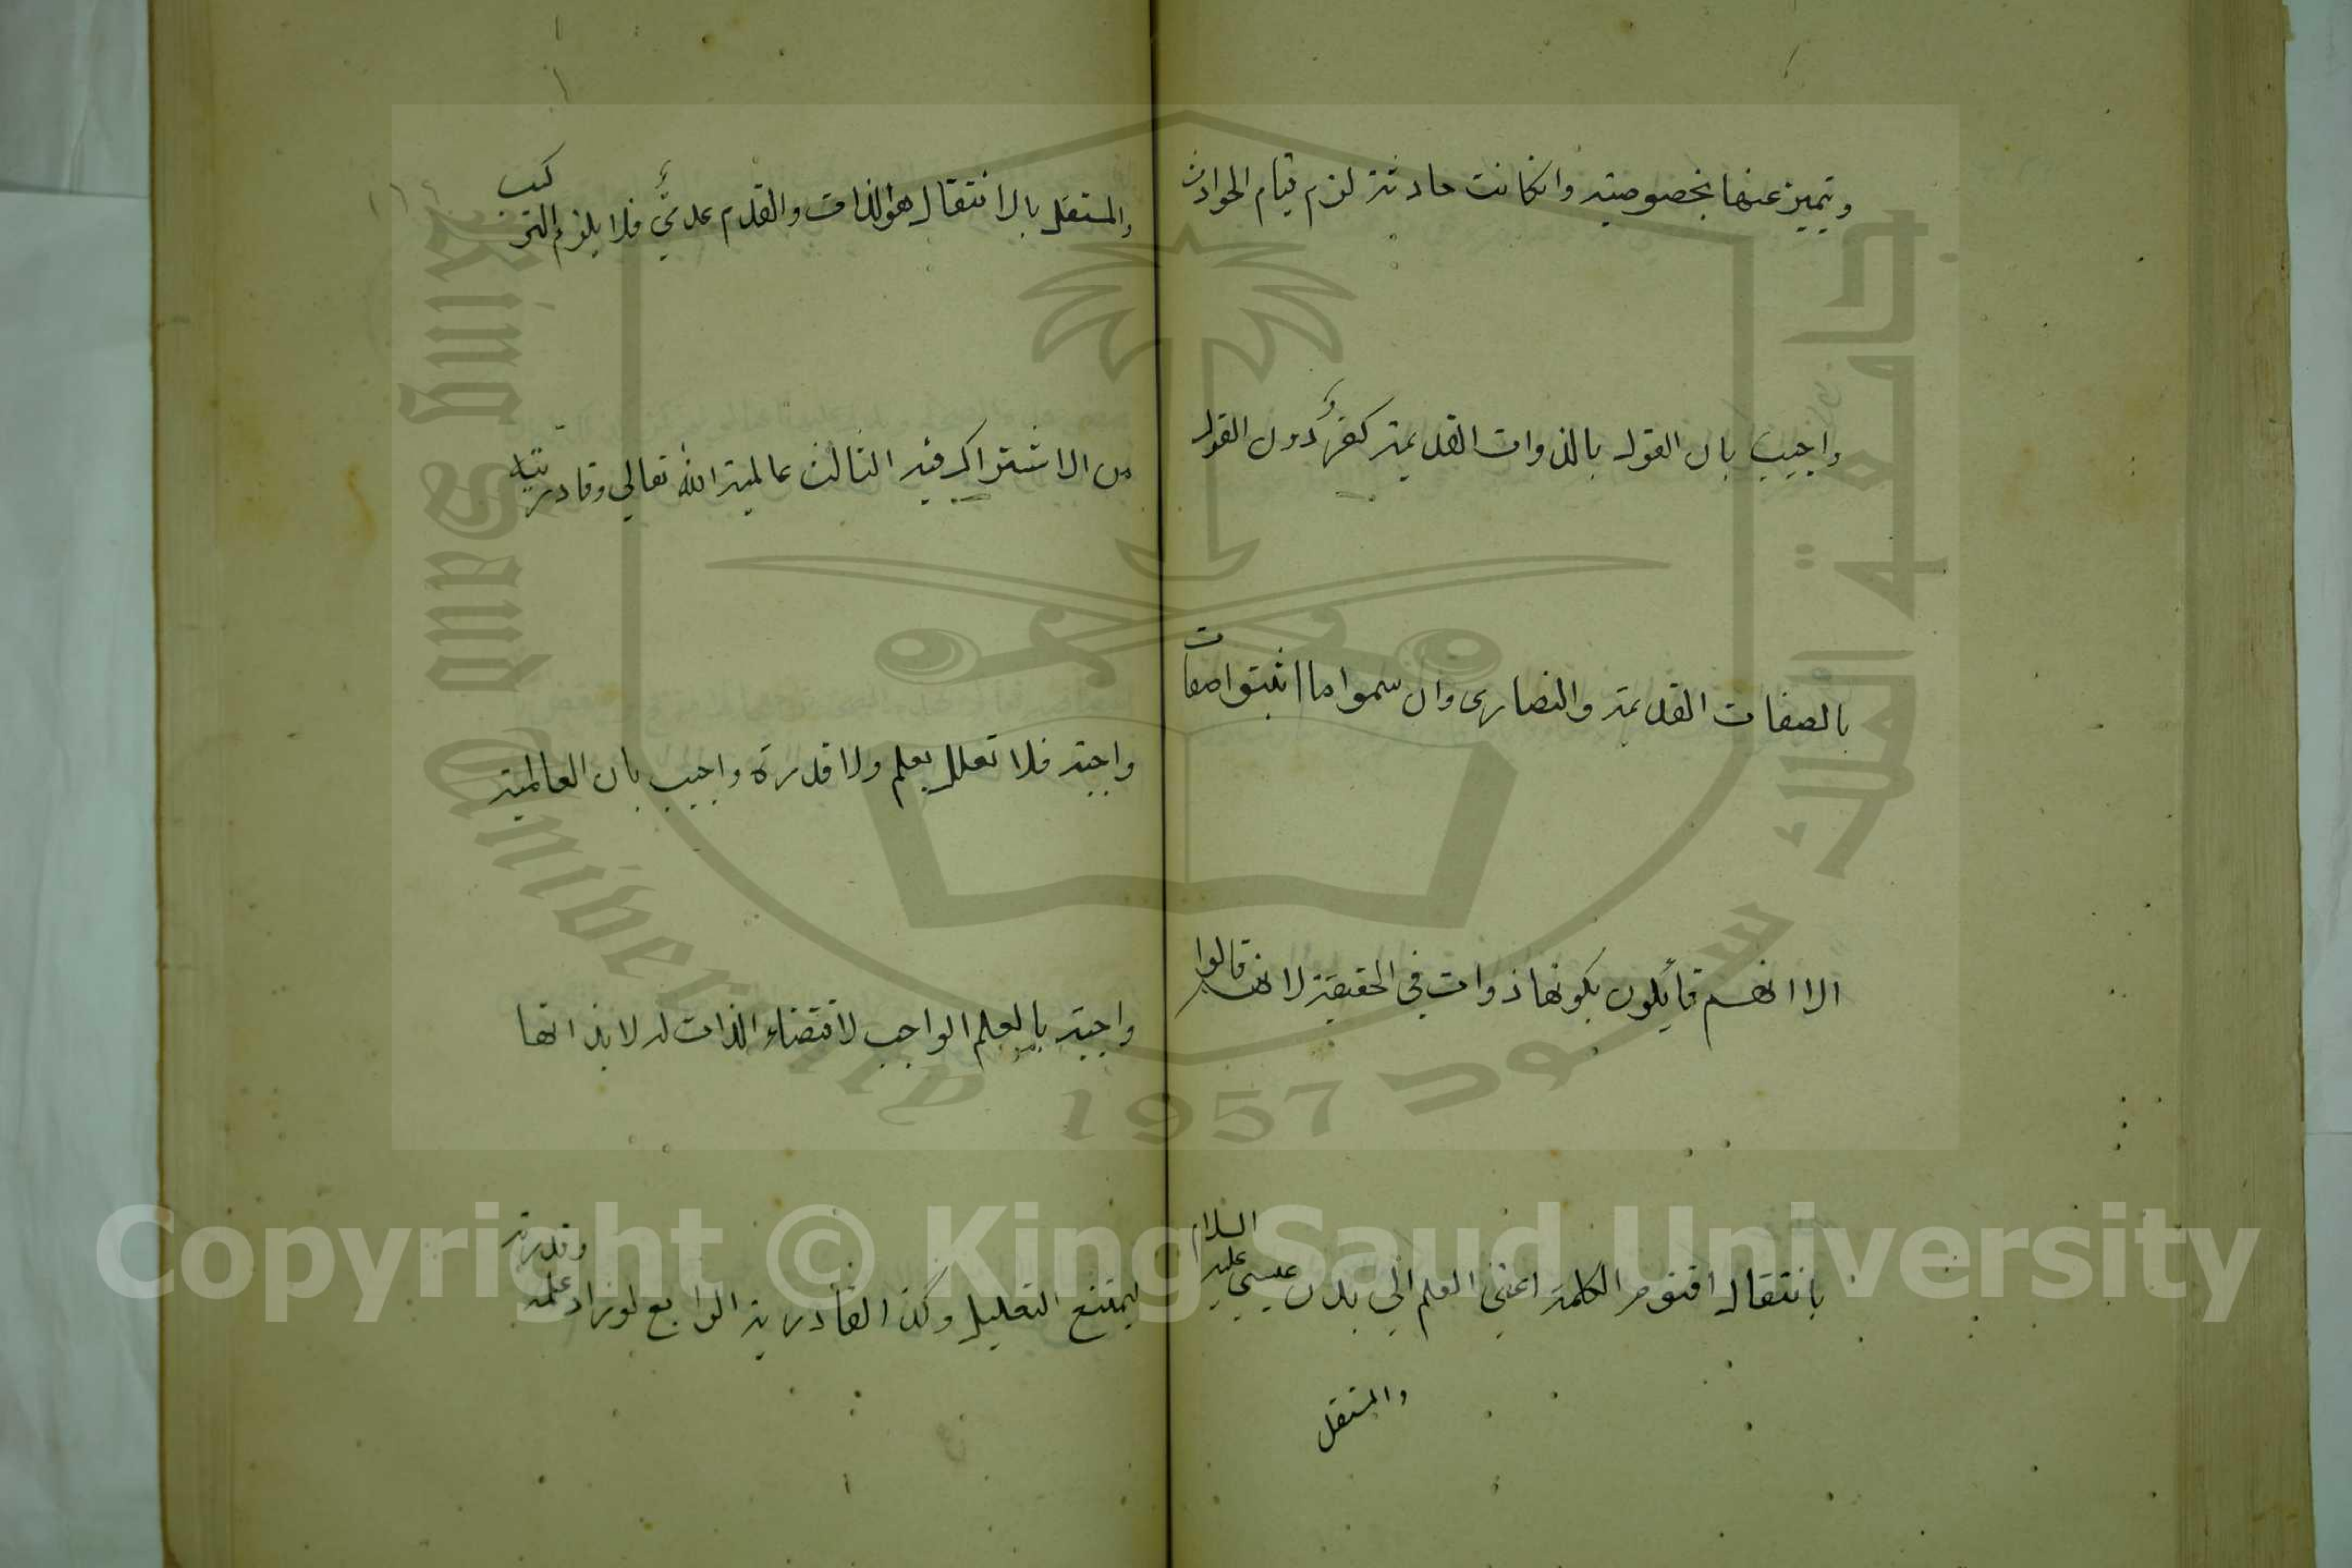 ويتميز عنها بخصوصيته وانكانت حادثة لزم قيام الحوادث
واجيب بان القول بالذوات القديمة كفرٌ دون القول
بالصفات القديمة والنصارى وان سموا ما اثبتوا صفات
الا انهم قائلون بكونها ذوات في الحقيقة لانهم قالوا
بانتقال اقنوم الكلمة اعني العلم الي بدن عيسي عليه السلام
والمستقل
والمستقل بالانتقال هو الذات والقدم عدميٌّ فلا يلزم التركب
من الاشتراك فيه الثالث عالمية الله تعالي وقادريته
واجبة فلا تعلل بعلم ولا قدرة واجيب بان العالمية
واجبة بالعلم الواجب لاقتضاء الذات له لا بذاتها
ليمتنع التعليل وكذا القادرية الرابع لو زاد علمه وقدرته
King Saud University
1957
جامعة الملك سعود
Copyright © King Saud University